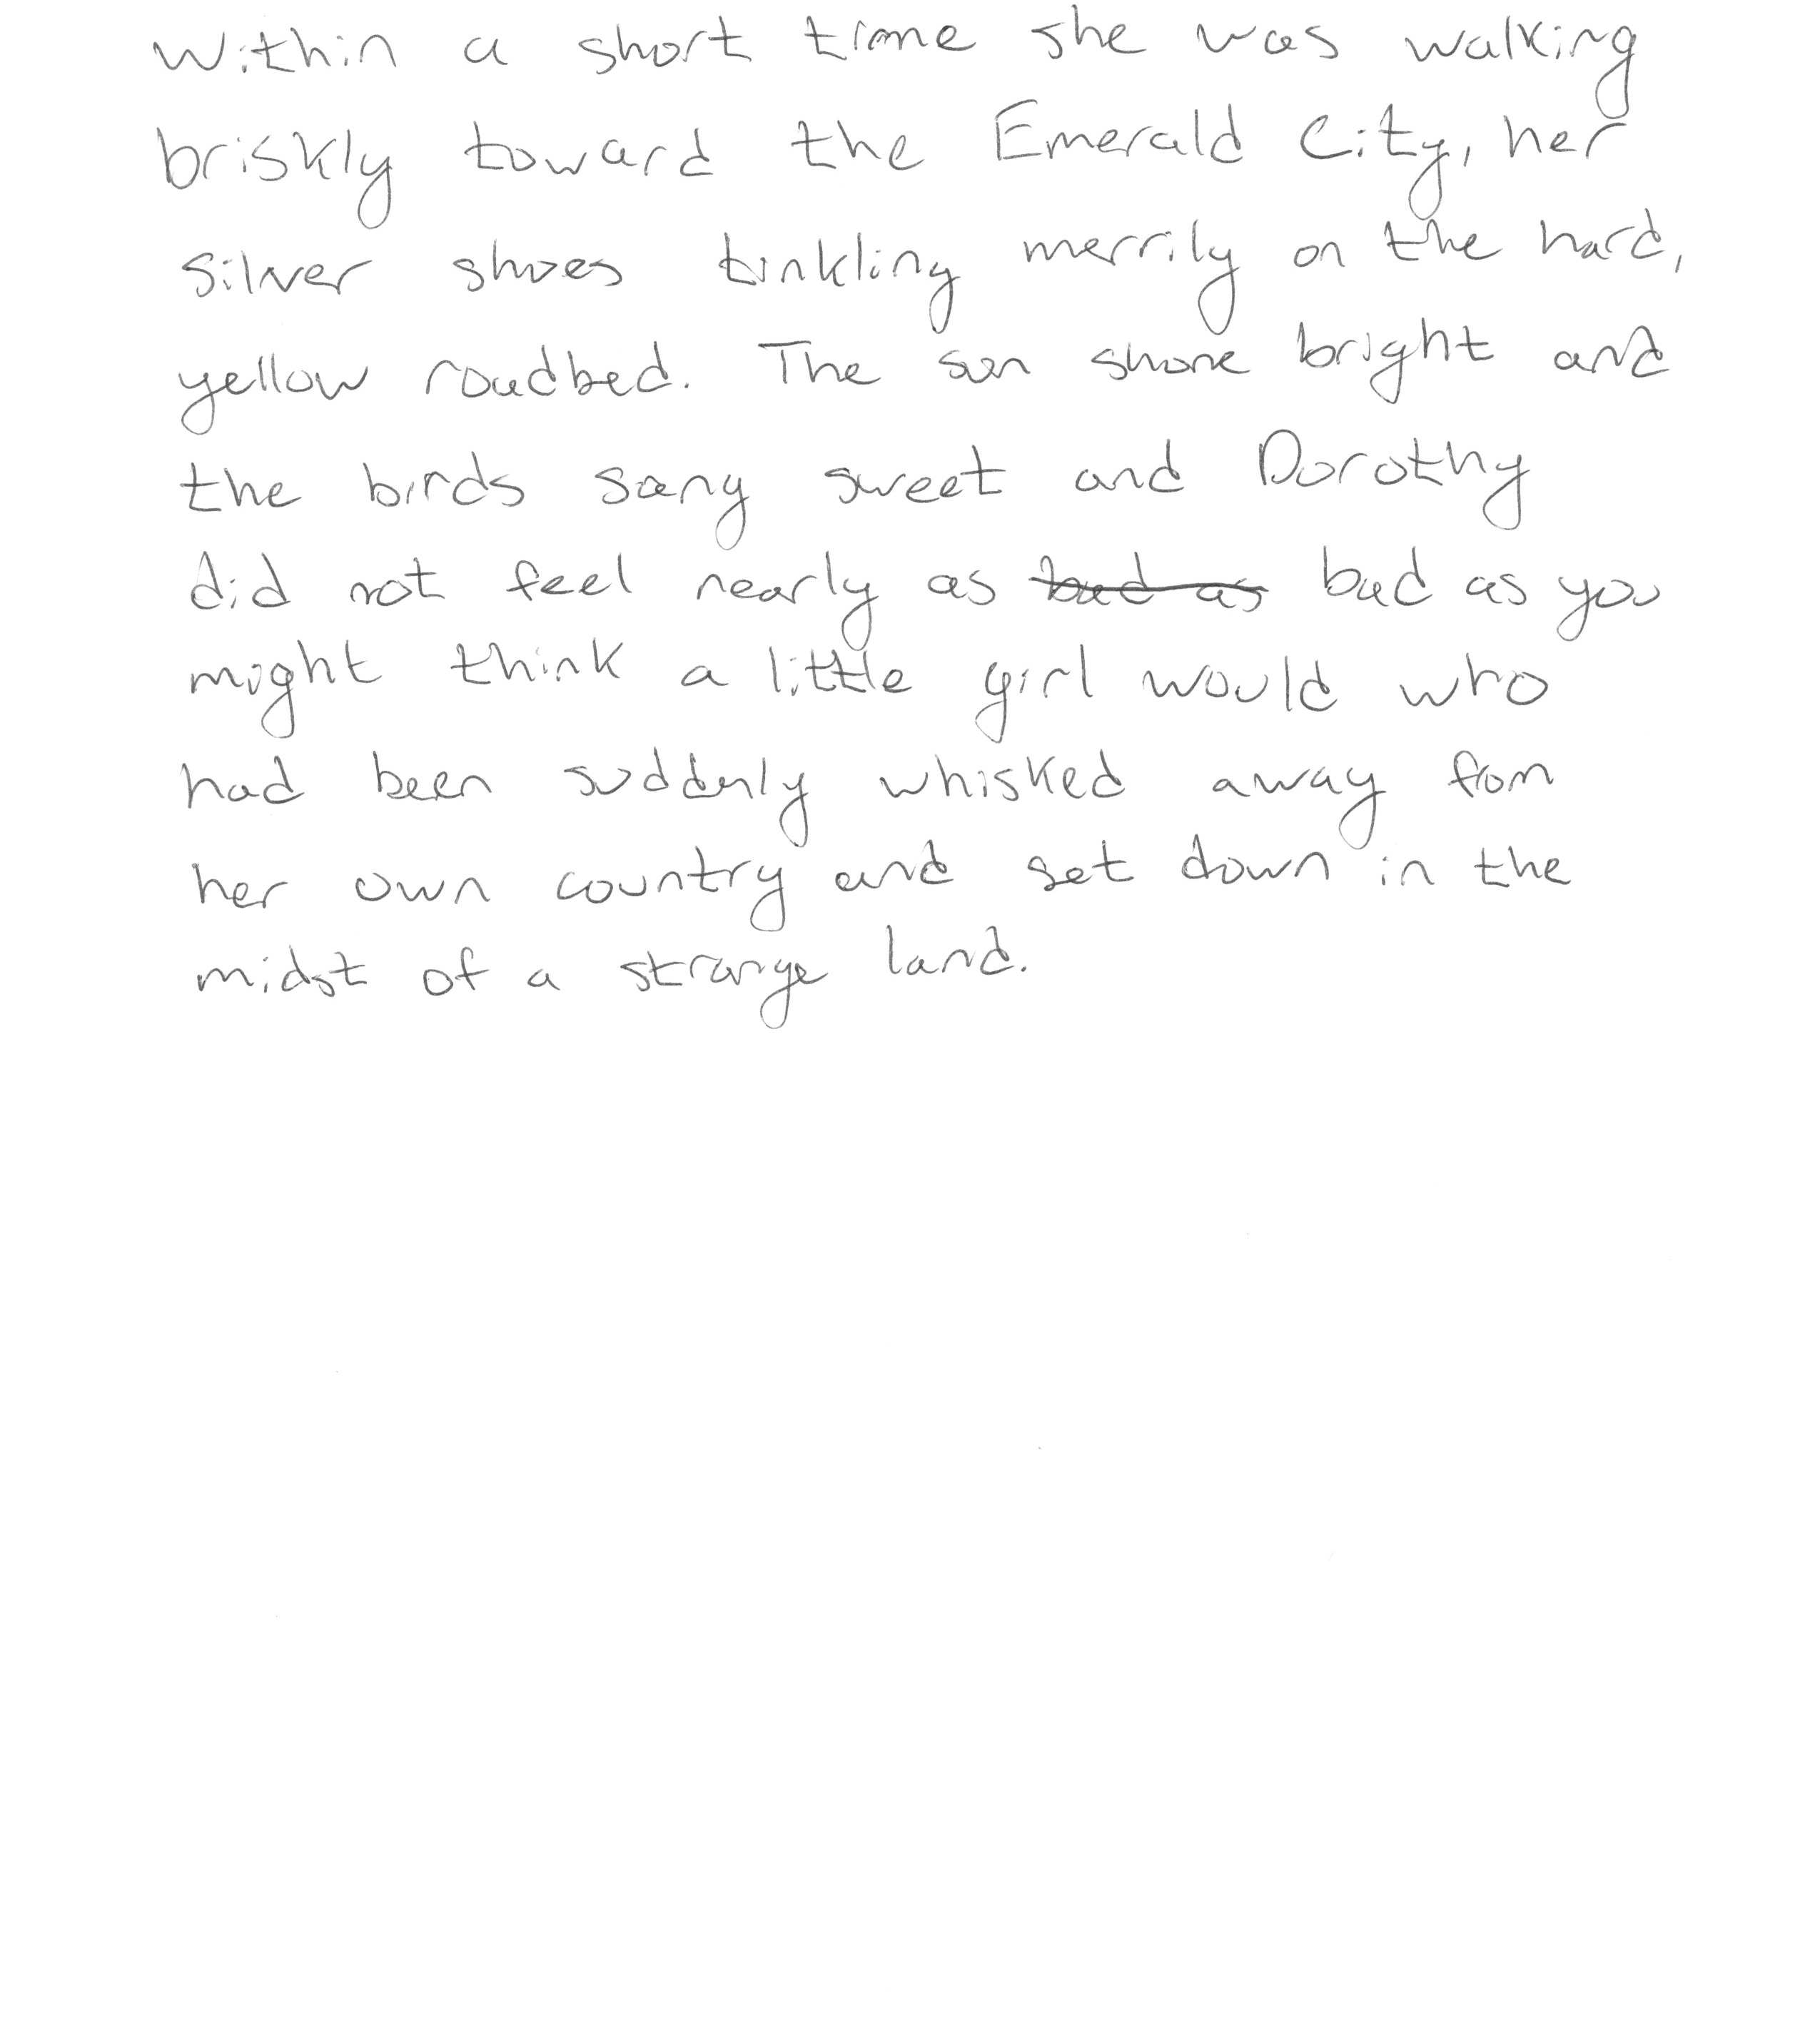 Within a short time she was walking
briskly toward the Emerald City, her
silver shoes tinkling merrily on the hard,
yellow roadbed. The sun shone bright and
the birds sang sweet and Dorothy
did not feel nearly as ~~bad as~~ bad as you
might think a little girl would who
had been suddenly whisked away from
her own country and set down in the
midst of a strange land.